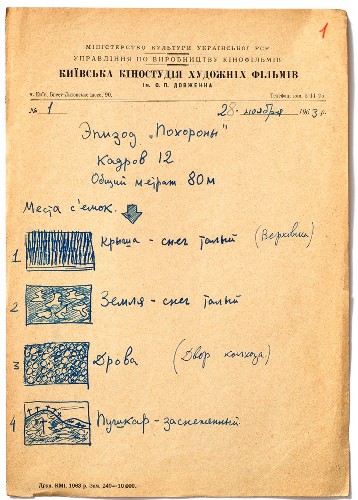 1
МІНІСТЕРСТВО КУЛЬТУРИ УКРАЇНСЬКОЇ РСР
УПРАВЛІННЯ ПО ВИРОБНИЦТВУ КІНОФІЛЬМІВ
КИЇВСЬКА КІНОСТУДІЯ ХУДОЖНІХ ФІЛЬМІВ
ім. О. П. ДОВЖЕНКА
м. Київ, Брест-Литовське шосе, 90.
№ 1 28 ноября 1963 р.
Эпизод „Похороны"
Кадров 12
Общий метраж 80 м
Места с'емок.
1 Крыша - снег талый (Верховина)
2 Земля - снег талый
3 Дрова (Двор колхоза)
4 Пушкар - заснеженный
Друк. ВМІ. 1963 р. Зам. 240—10 000.